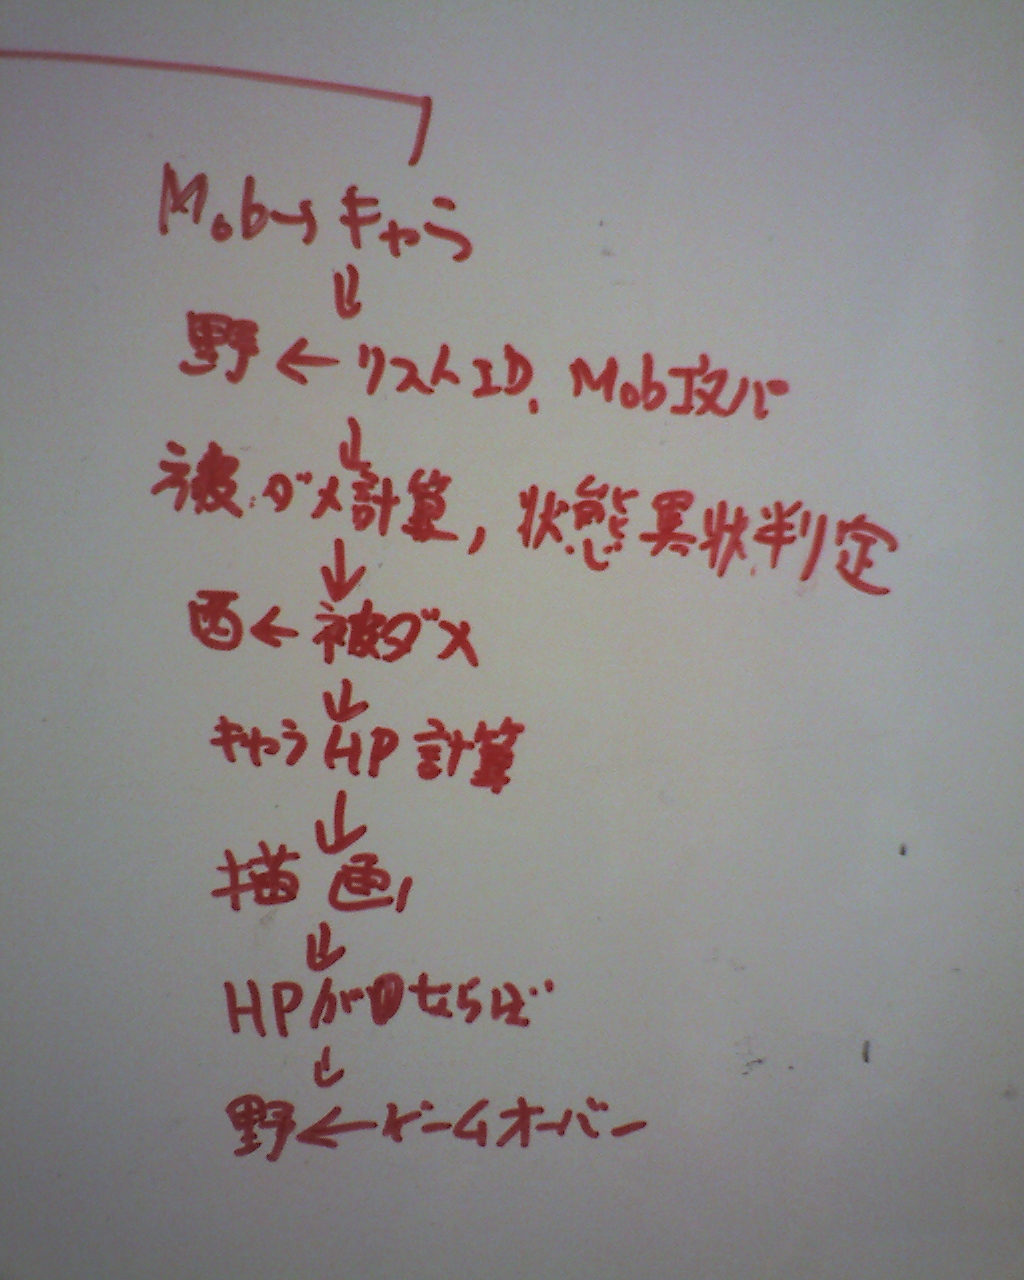 Mob→キャラ
↓
野←リストID, Mob攻パ
↓
被ダメ計算, 状態異状判定
↓
西←被ダメ
↓
キャラHP計算
↓
描画
↓
HPが0ならば
↓
野←ゲームオーバー